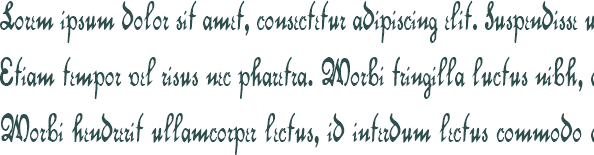 Lorem ipsum dolor sit amet, consectetur adipiscing elit. Suspendisse u
Etiam tempor vel risus nec pharetra. Morbi fringilla luctus nibh,
Morbi hendrerit ullamcorper lectus, id interdum lectus commodo